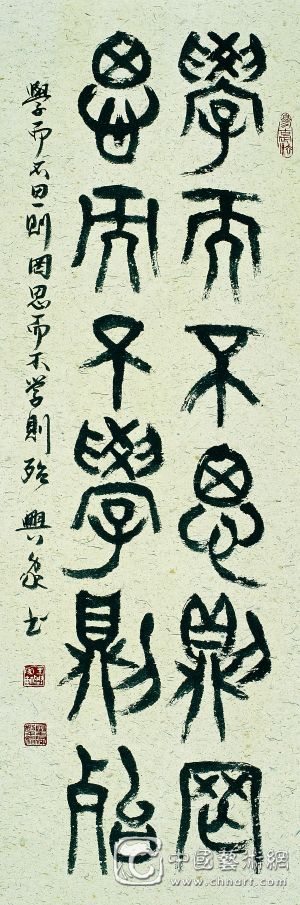 學而不思則罔
思而不學則殆
學而不思則罔思而不学則殆 興 书
中國藝術網
www.chnart.com